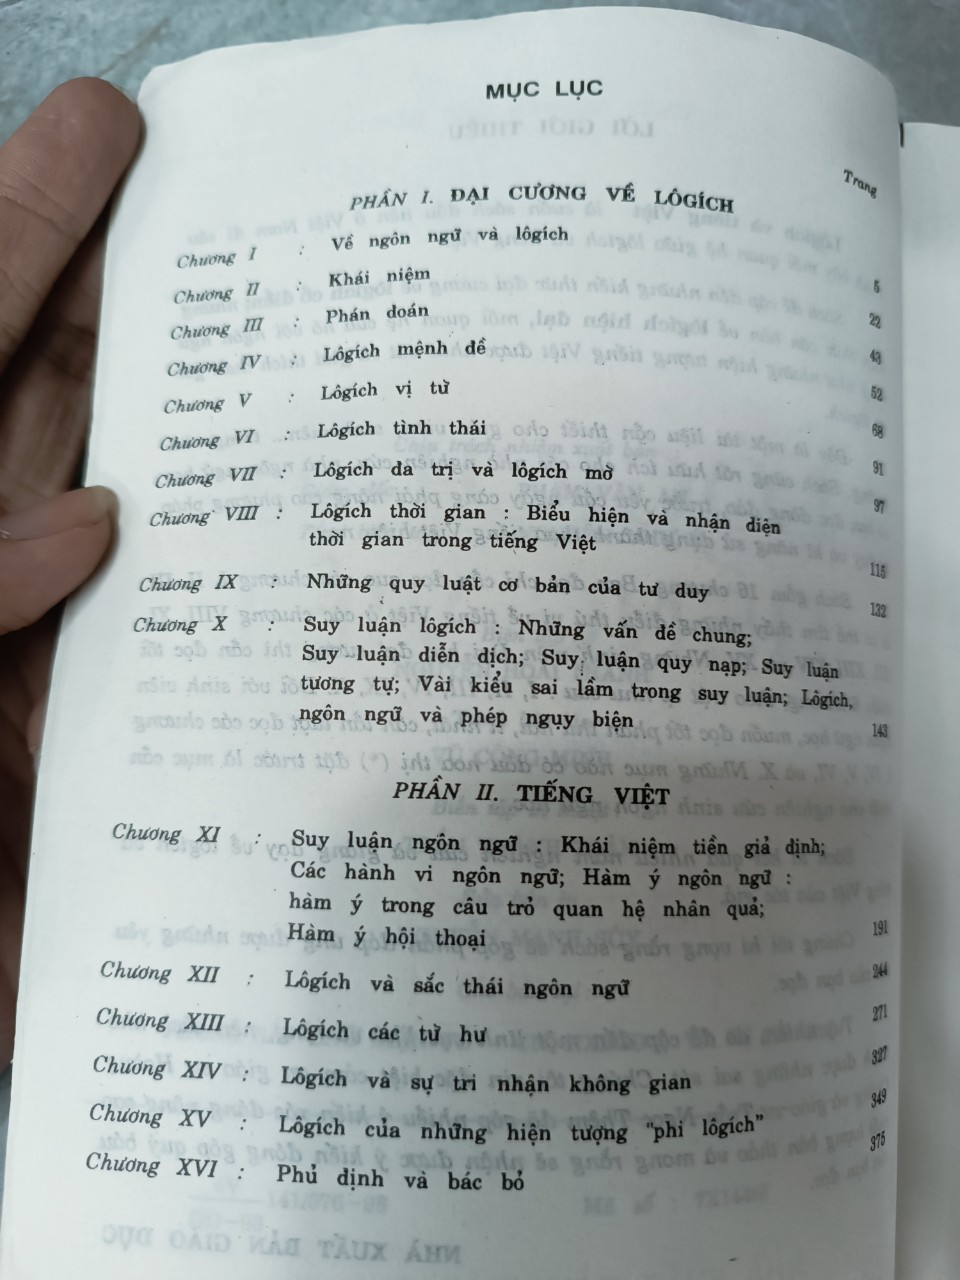 MỤC LỤC
Trang
PHẦN I. ĐẠI CƯƠNG VỀ LÔGÍCH
Chương I : Về ngôn ngữ và lôgích 5
Chương II : Khái niệm 22
Chương III : Phán đoán 43
Chương IV : Lôgích mệnh đề 52
Chương V : Lôgích vị từ 68
Chương VI : Lôgích tình thái 91
Chương VII : Lôgích đa trị và lôgích mờ 97
Chương VIII : Lôgích thời gian : Biểu hiện và nhận diện
thời gian trong tiếng Việt 115
Chương IX : Những quy luật cơ bản của tư duy 132
Chương X : Suy luận lôgích : Những vấn đề chung;
Suy luận diễn dịch; Suy luận quy nạp; Suy luận
tương tự; Vài kiểu sai lầm trong suy luận; Lôgích,
ngôn ngữ và phép ngụy biện 143
PHẦN II. TIẾNG VIỆT
Chương XI : Suy luận ngôn ngữ : Khái niệm tiền giả định;
Các hành vi ngôn ngữ; Hàm ý ngôn ngữ :
hàm ý trong câu trỏ quan hệ nhân quả;
Hàm ý hội thoại 191
Chương XII : Lôgích và sắc thái ngôn ngữ 244
Chương XIII : Lôgích các từ hư 271
Chương XIV : Lôgích và sự tri nhận không gian 327
Chương XV : Lôgích của những hiện tượng "phi lôgích" 349
Chương XVI : Phủ định và bác bỏ 375